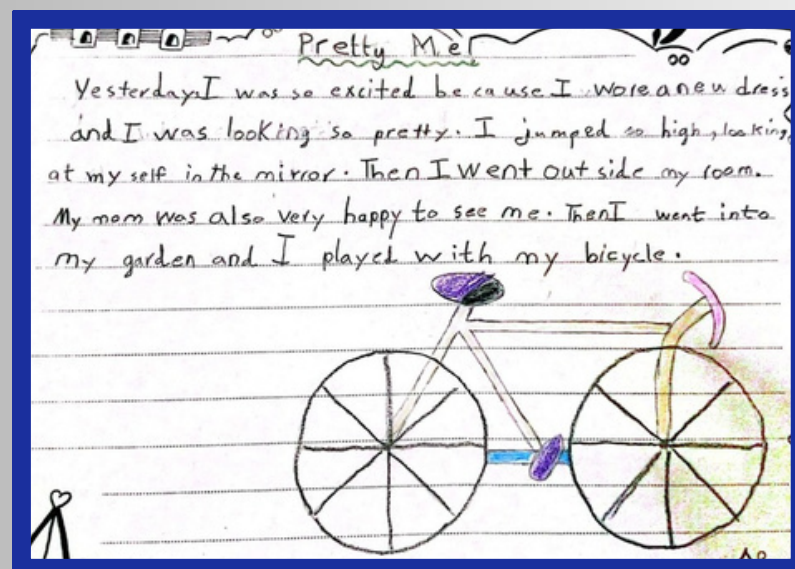 Pretty Me!
Yesterday, I was so excited because I wore a new dress
and I was looking so pretty. I jumped so high, looking
at my self in the mirror. Then I went out side my room.
My mom was also very happy to see me. Then I went into
my garden and I played with my bicycle.